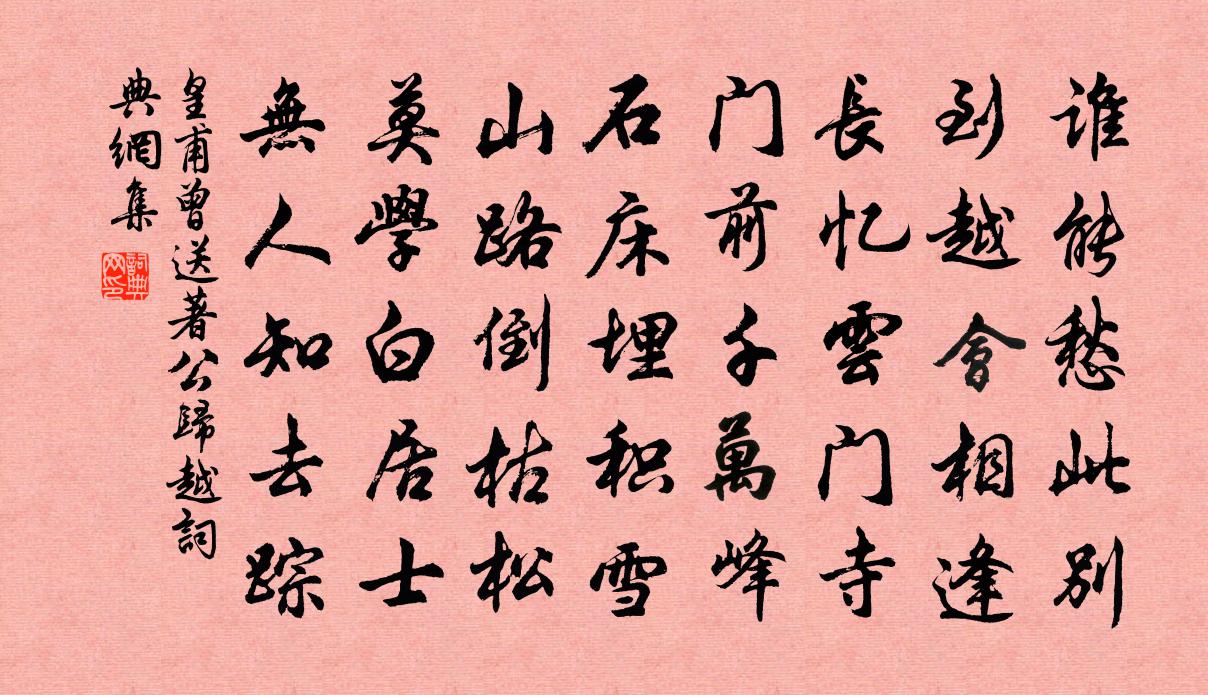 谁能愁此别
到越會相逢
長忆雲门寺
门前千萬峰
石床埋积雪
山路倒枯松
莫學白居士
無人知去踪
皇甫曾送著公歸越詞
典網集
詞典
网印